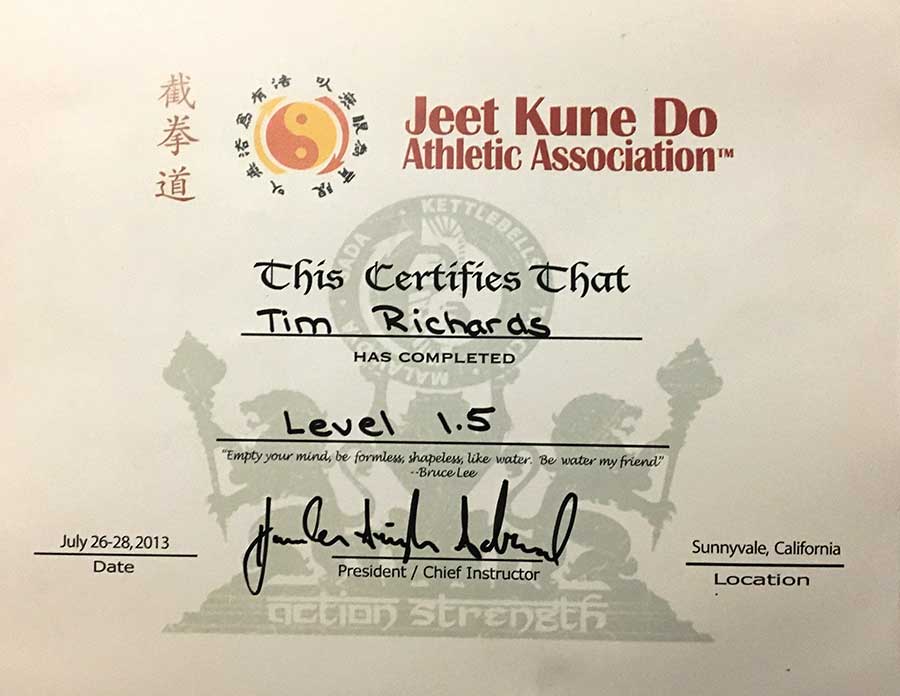 截拳道
以無限為有限
以無法為有法
Jeet Kune Do
Athletic Association™
KETTLEBELL
This Certifies That
Tim Richards
HAS COMPLETED
Level 1.5
"Empty your mind, be formless, shapeless, like water. Be water my friend"
--Bruce Lee
July 26-28, 2013
Date
President / Chief Instructor
Sunnyvale, California
Location
action strength